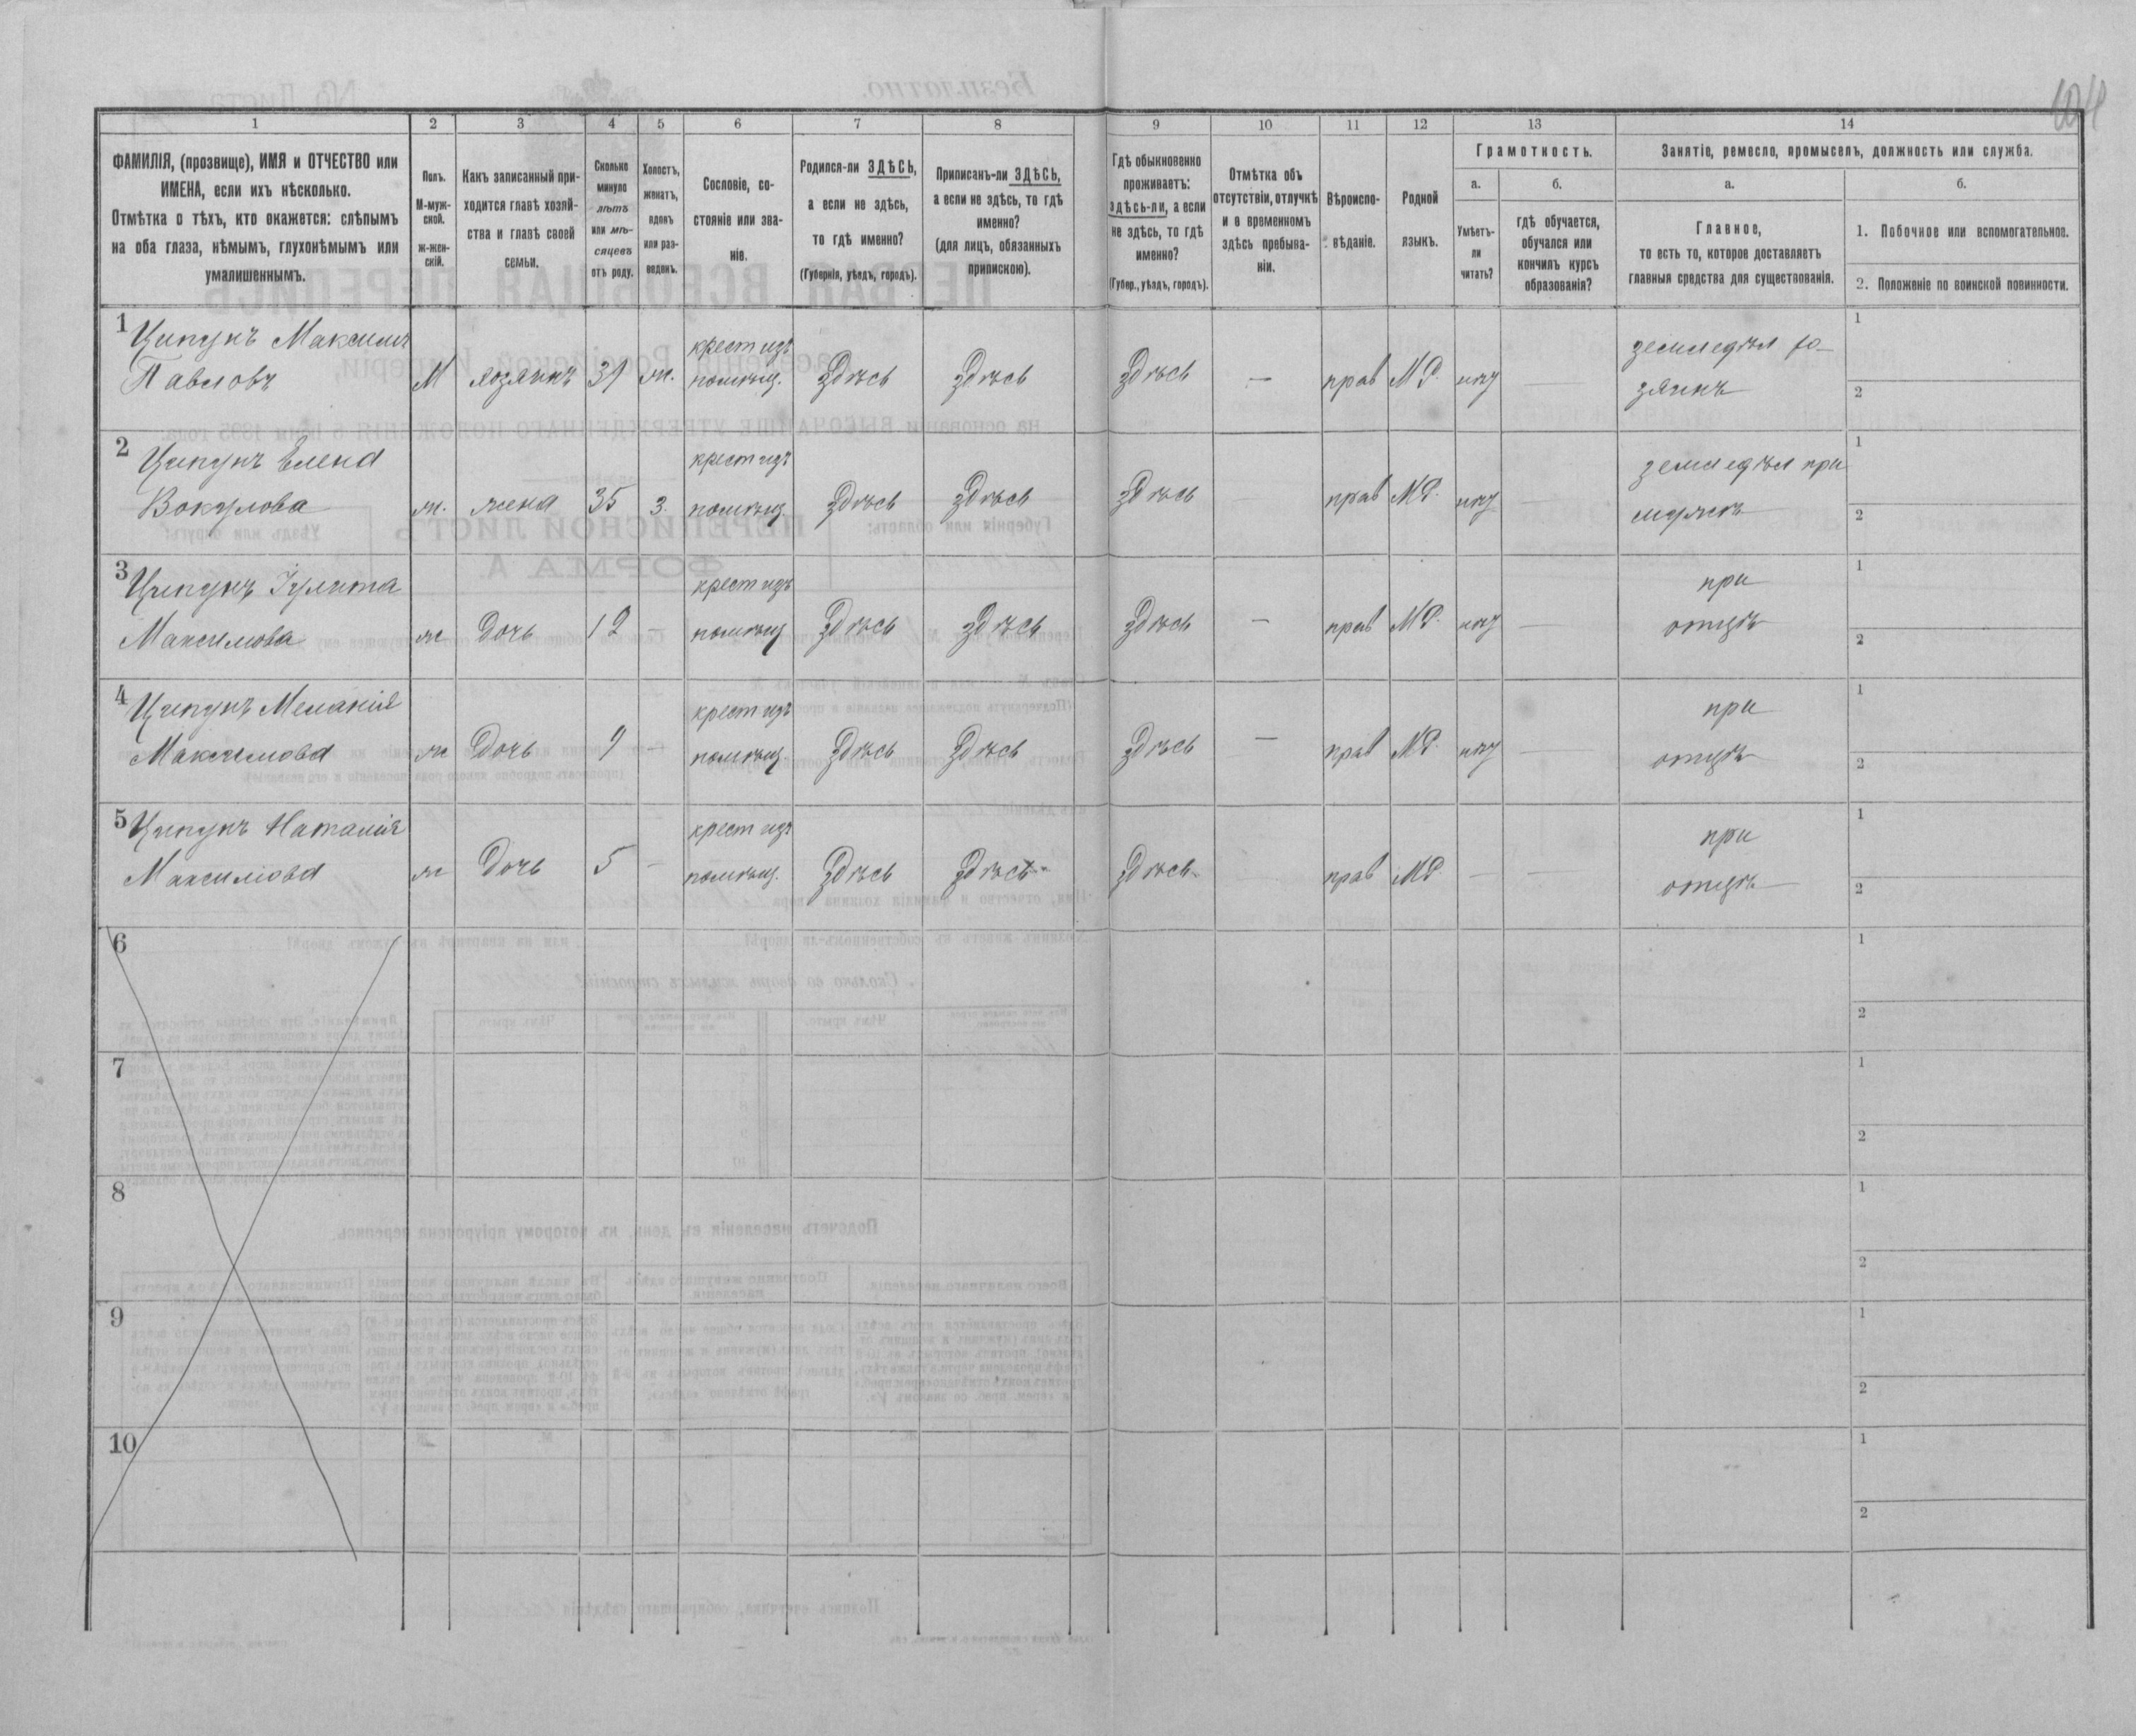 1 2 3 4 5 6 7 8 9 10 11 12 13 14
ФАМИЛІЯ, (прозвище), ИМЯ и ОТЧЕСТВО или
ИМЕНА, если ихъ нѣсколько.
Отмѣтка о тѣхъ, кто окажется: слѣпымъ
на оба глаза, нѣмымъ, глухонѣмымъ или
умалишеннымъ.
Полъ.
М-муж-
ской.
ж-жен-
скій.
Какъ записанный при-
ходится главѣ хозяй-
ства и главѣ своей
семьи.
Сколько
минуло
лѣтъ
или мѣ-
сяцевъ
отъ роду.
Холостъ,
женатъ,
вдовъ
или раз-
веденъ.
Сословіе, со-
стояніе или зва-
ніе.
Родился-ли ЗДѢСЬ,
а если не здѣсь,
то гдѣ именно?
(Губернія, уѣздъ, городъ).
Приписанъ-ли ЗДѢСЬ,
а если не здѣсь, то гдѣ
именно?
(для лицъ, обязанныхъ
припискою).
Гдѣ обыкновенно
проживаетъ:
здѣсь-ли, а если
не здѣсь, то гдѣ
именно?
(Губер., уѣздъ, городъ).
Отмѣтка объ
отсутствіи, отлучкѣ
и о временномъ
здѣсь пребыва-
ніи.
Вѣроиспо-
вѣданіе.
Родной
языкъ.
Грамотность.
а.
Умѣетъ-
ли
читать?
б.
гдѣ обучается,
обучался или
кончилъ курсъ
образованія?
Занятіе, ремесло, промыселъ, должность или служба.
а.
Главное,
то есть то, которое доставляетъ
главныя средства для существованія.
б.
1. Побочное или вспомогательное.
2. Положеніе по воинской повинности.
1 Ципунъ Максимъ крест изъ земледѣл хо- 1
Павловъ М хозяинъ ж. помѣщ. Здѣсь Здѣсь Здѣсь — прав МР. нѣт зяинъ 2
2 Ципунъ Елена крест изъ земледѣл при 1
Вокулова ж. жена 35 З. помѣщ. Здѣсь Здѣсь Здѣсь прав МР. нѣт — мужѣ 2
3 Ципунъ Іулита крест изъ при 1
Максимова ж дочь 12 — помѣщ Здѣсь Здѣсь Здѣсь — прав МР. нѣт — отцѣ 2
4 Ципунъ Меланія крест изъ при 1
Максимова ж дочь 9 — помѣщ Здѣсь Здѣсь Здѣсь — прав МР. нѣт — отцѣ 2
5 Ципунъ Наталія крест изъ при 1
Максимова ж дочь 5 — помѣщ. Здѣсь Здѣсь Здѣсь прав МР — — отцѣ 2
6 1
2
7 1
2
8 1
2
9 1
2
10 1
2